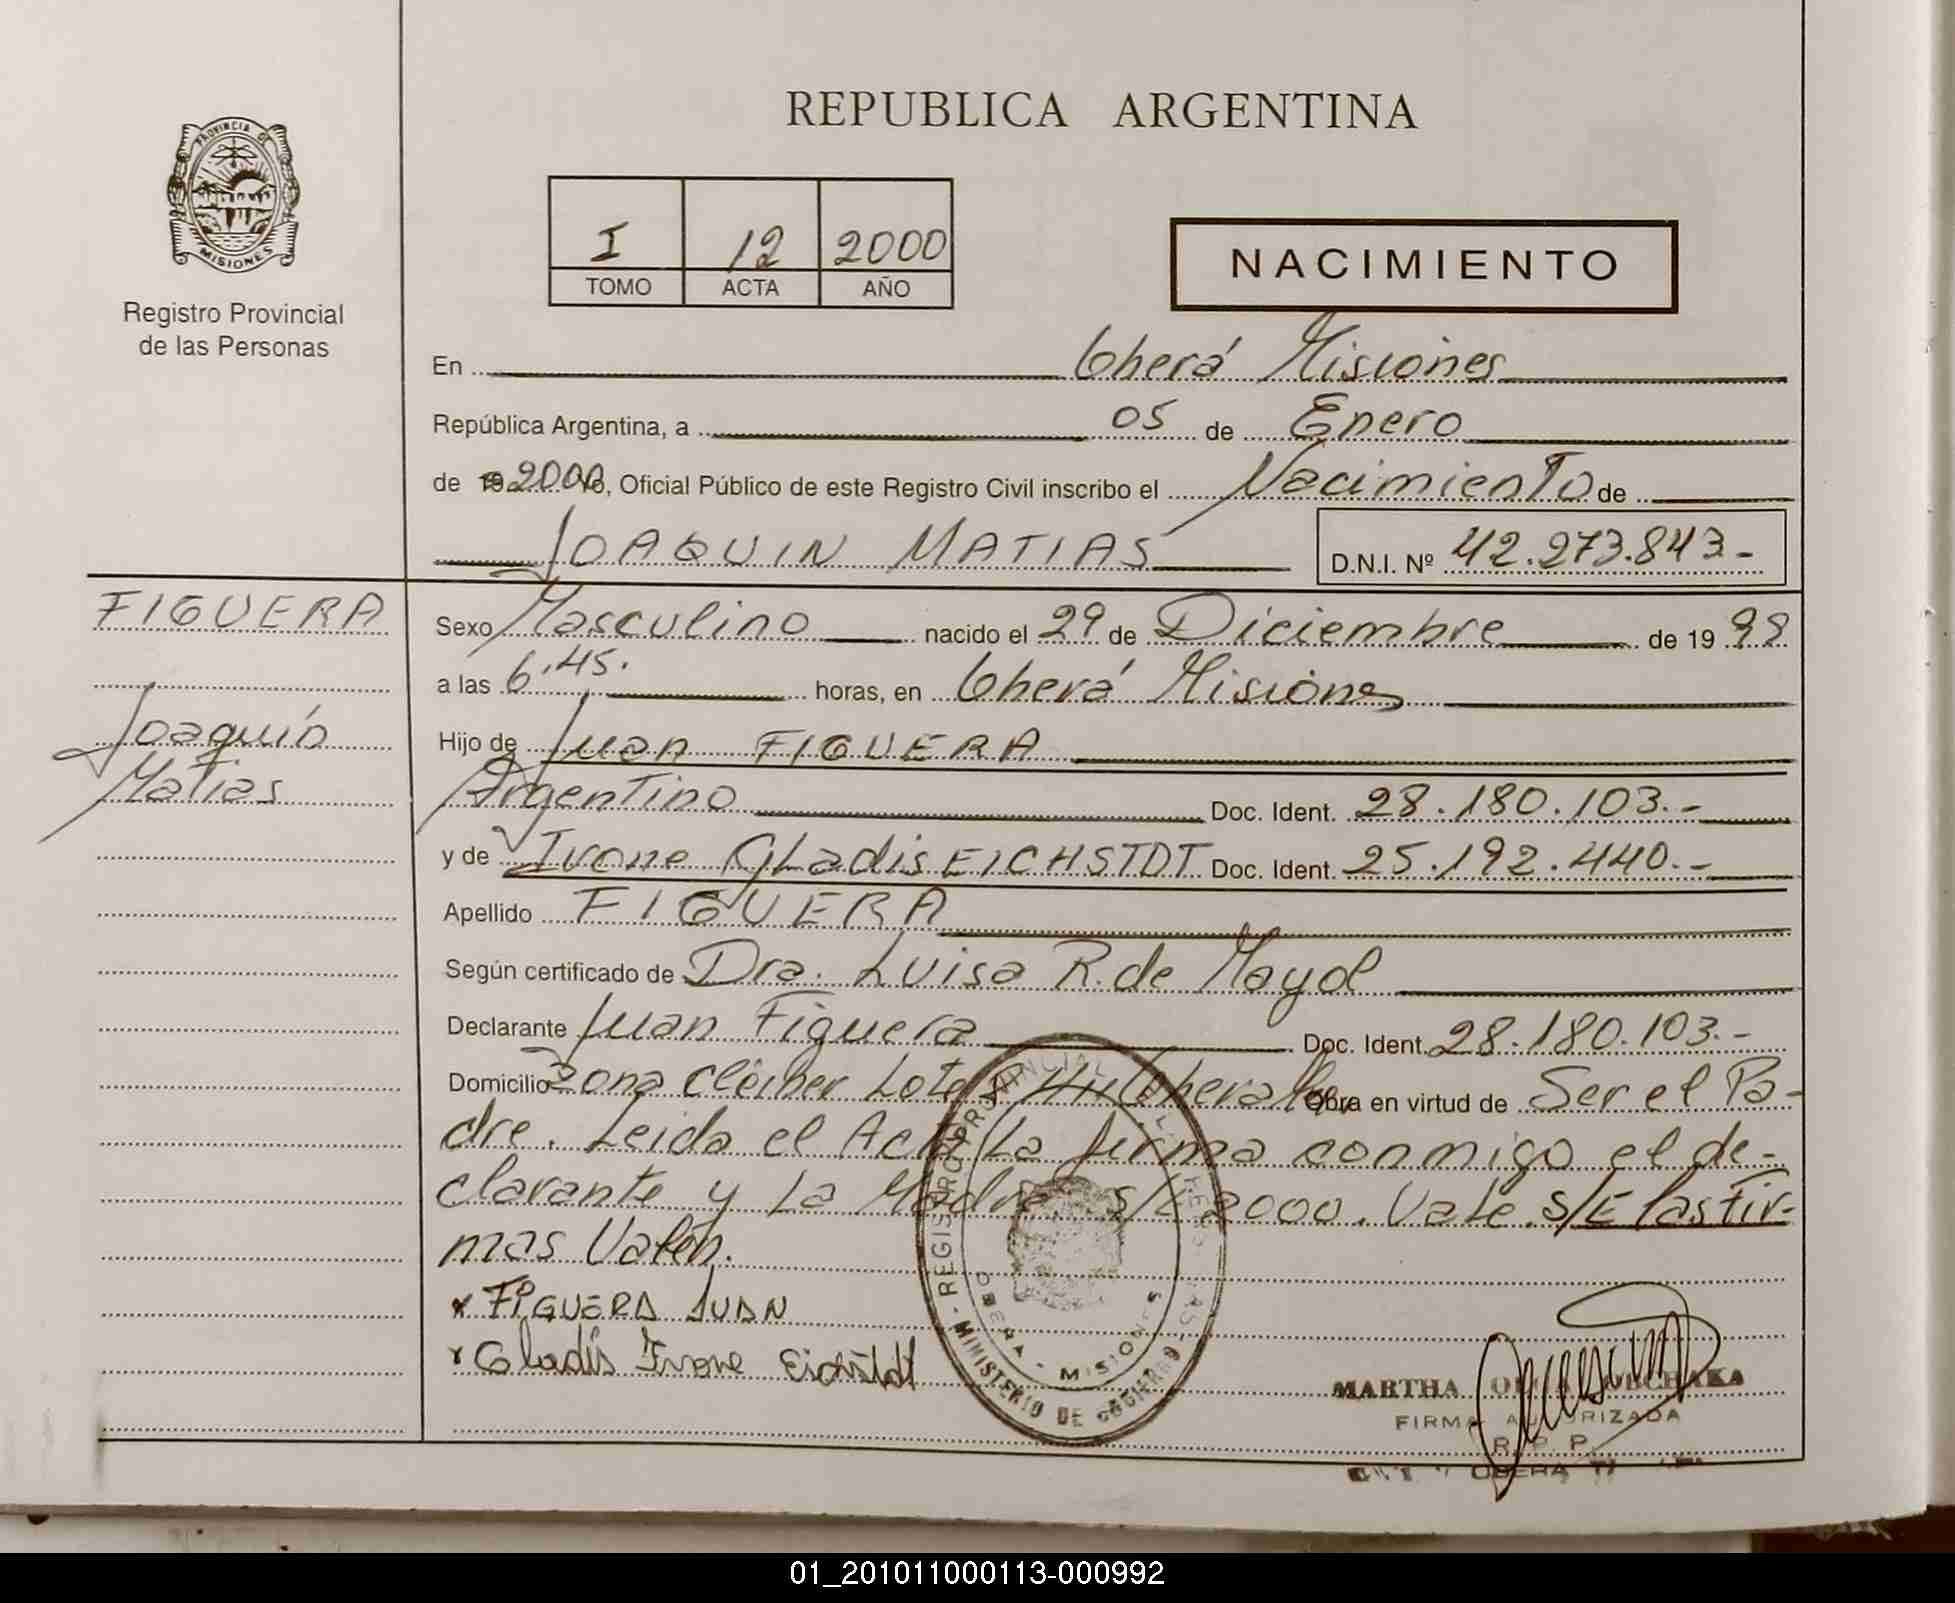 REPUBLICA ARGENTINA
PROVINCIA DE
MISIONES
Registro Provincial
de las Personas
I 12 2000
TOMO ACTA AÑO
NACIMIENTO
En Oberá Misiones
República Argentina, a 05 de Enero
de 19 2000 Yo, Oficial Público de este Registro Civil inscribo el Nacimiento de
JOAQUIN MATIAS D.N.I. Nº 42.273.843-
FIGUERA
Joaquín
Matias
Sexo Masculino nacido el 29 de Diciembre de 19 99
a las 6:45. horas, en Oberá Misiones
Hijo de Juan FIGUERA
Argentino Doc. Ident. 28.180.103.-
y de Ivone Gladis EICHSTDT Doc. Ident. 25.192.440.-
Apellido FIGUERA
Según certificado de Dra. Luisa R. de Mayol
Declarante Juan Figuera Doc. Ident. 28.180.103.-
Domicilio Zona Cleiber Lote Oberá Obra en virtud de Ser el Pa-
dre. Leida el Acta La firma conmigo el de-
clarante y La Madre S/E 2000. Vale. S/E las Fir-
mas Valen.
x FIGUERA JUAN
x Gladis Ivone Eichstdt
REGISTRO PROVINCIAL DE LAS
MINISTERIO DE GOBIERNO
OBERA - MISIONES
MARTHA
FIRMA AUTORIZADA
R. P. P.
OBERA
01_201011000113-000992